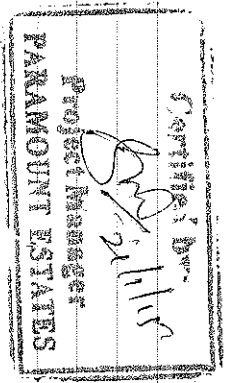 Certified by
21/1/15
Project Manager
PARAMOUNT ESTATES